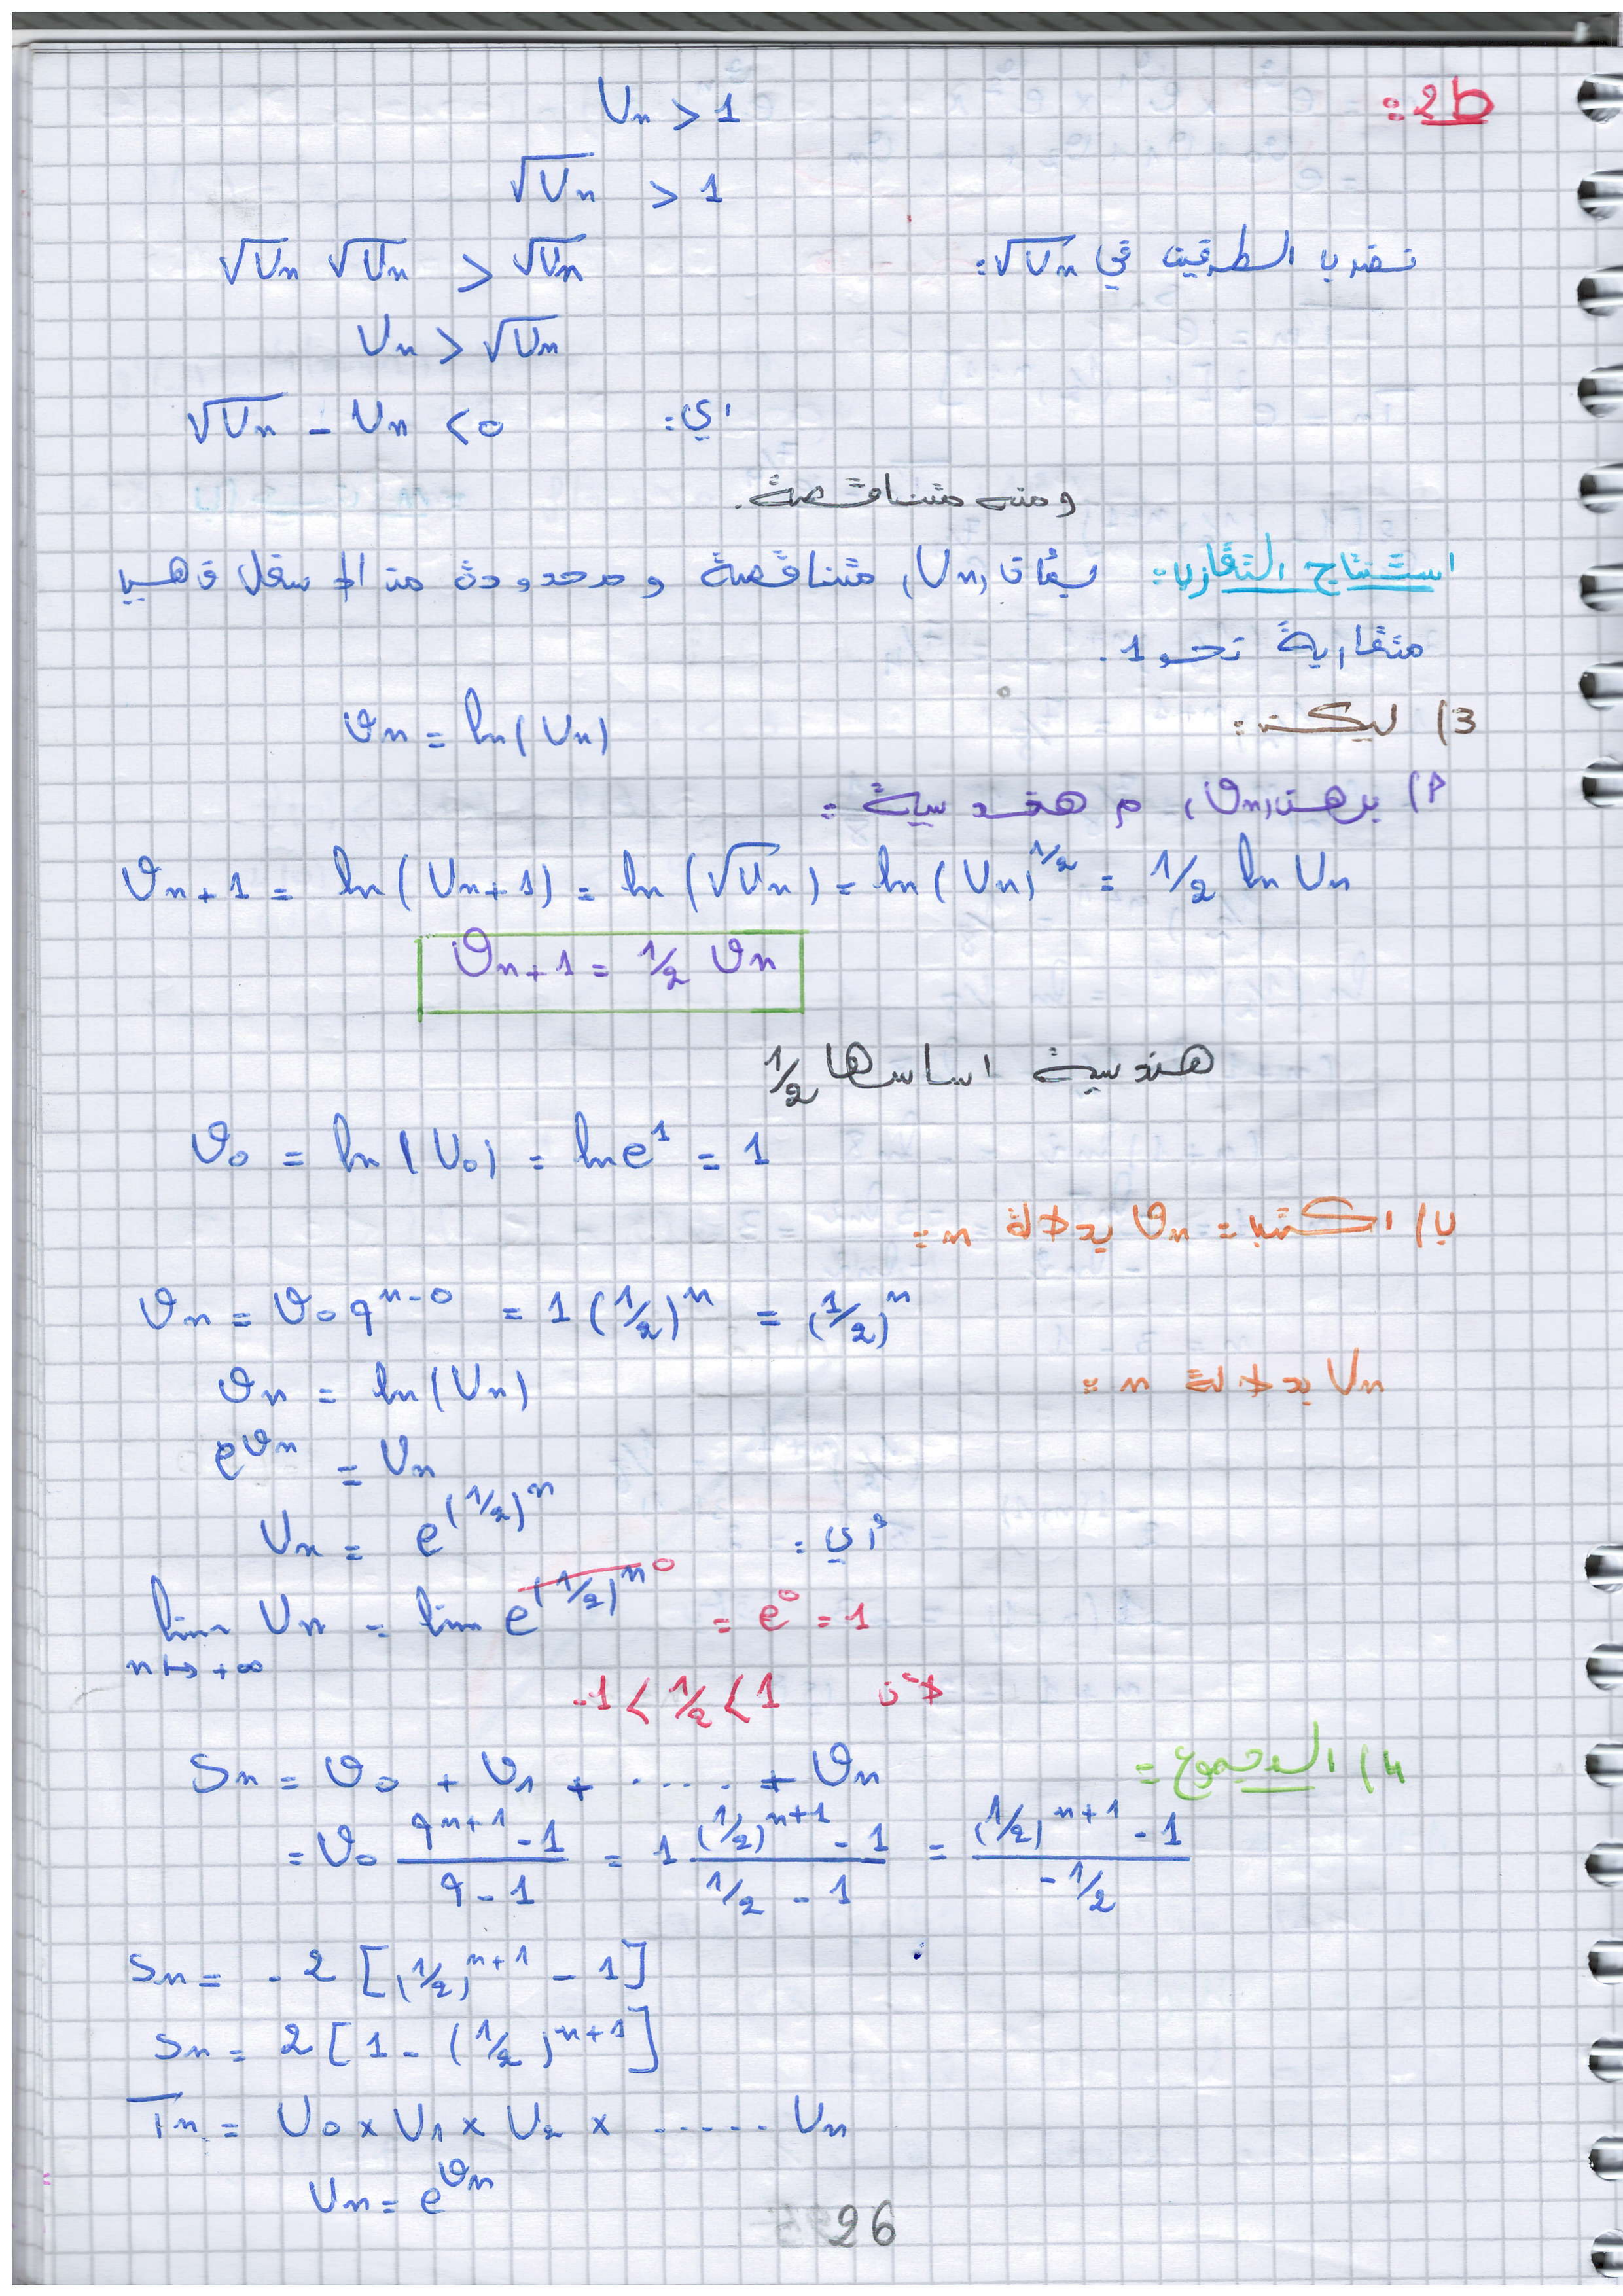 ط2: Uₙ > 1
√Uₙ > 1
نضرب الطرفين في √Uₙ: √Uₙ √Uₙ > √Uₙ
Uₙ > √Uₙ
اي: √Uₙ - Uₙ < 0
ومنه متناقصة.
استنتاج التقارب: بمأن (Uₙ) متناقصة ومحدودة من الاسفل فهي
متقاربة نحو 1.
3) ليكن: ϑₙ = ln(Uₙ)
أ) برهن (ϑₙ) م هندسية:
ϑₙ₊₁ = ln(Uₙ₊₁) = ln(√Uₙ) = ln(Uₙ)^1/2 = 1/2 ln Uₙ
ϑₙ₊₁ = 1/2 ϑₙ
هندسية اساسها 1/2
ϑ₀ = ln(U₀) = ln e¹ = 1
ب) اكتب: ϑₙ بدلالة n:
ϑₙ = ϑ₀ q^(n-0) = 1(1/2)^n = (1/2)^n
Uₙ بدلالة n: ϑₙ = ln(Uₙ)
e^ϑₙ = Uₙ
أي: Uₙ = e^(1/2)^n
lim n↦+∞ Uₙ = lim e^(1/2)^n 0 = e⁰ = 1
لأن -1 < 1/2 < 1
4) المجموع: Sₙ = ϑ₀ + ϑ₁ + ..... + ϑₙ
= ϑ₀ (q^(n+1) - 1)/(q - 1) = 1 ((1/2)^(n+1) - 1)/(1/2 - 1) = ((1/2)^(n+1) - 1)/(-1/2)
Sₙ = -2 [(1/2)^(n+1) - 1]
Sₙ = 2 [1 - (1/2)^(n+1)]
Tₙ = U₀ × U₁ × U₂ × ...... Uₙ
Uₙ = e^ϑₙ
26